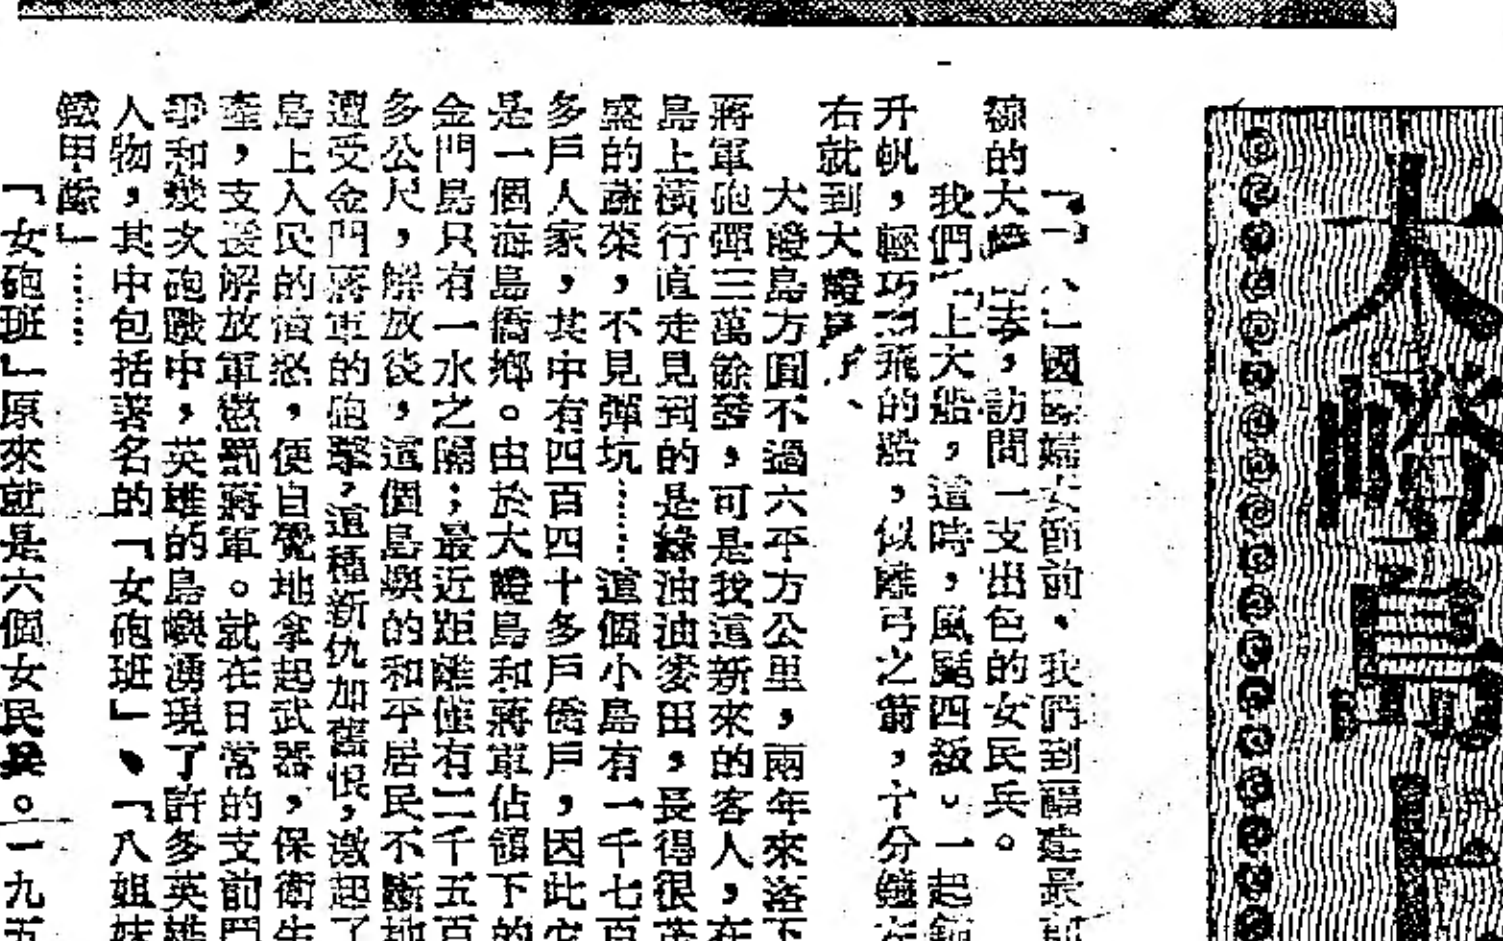 大嶝島上
「三八」國際婦女節前，我們到福建最前
線的大嶝島去，訪問一支出色的女民兵。
我們上大船，這時，風颳四級。一起錨
升帆，輕巧飛的船，似離弓之箭，十分鐘左
右就到大嶝島了、
大嶝島方圓不過六平方公里，兩年來落下
蔣軍砲彈三萬餘發，可是我這新來的客人，在
島上橫行直走見到的是綠油油麥田，長得很茂
盛的蔬菜，不見彈坑……這個小島有一千七百
多戶人家，其中有四百四十多戶僑戶，因此它
是一個海島僑鄉。由於大嶝島和蔣軍佔領下的
金門島只有一水之隔；最近距離僅有二千五百
多公尺，解放後，這個島嶼的和平居民不斷地
遭受金門蔣軍的砲擊，這種新仇加舊恨，激起了
島上人民的憤怒，便自覺地拿起武器，保衛生
產，支援解放軍懲罰蔣軍。就在日常的支前鬥
爭和幾次砲戰中，英雄的島嶼湧現了許多英雄
人物，其中包括著名的「女砲班」、「八姐妹
鐵甲隊」……
「女砲班」原來就是六個女民兵。一九五